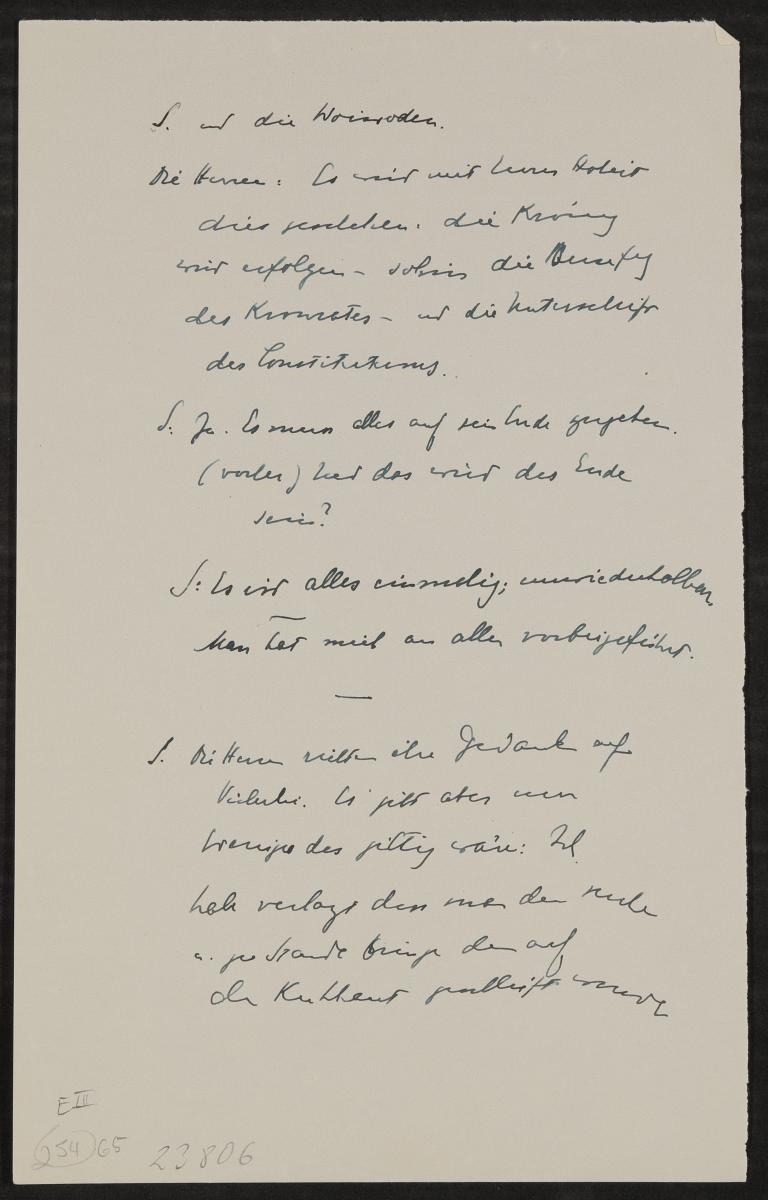 S. und die Woiwoden.
Die Herren: Es wird mit Eurer Hoheit
dies geschehen: die Krönung
wird erfolgen – sohin die
des Kronrates – und die Unterschrift
des Constitutions.
S: Ja. Es muss alles auf sein Ende zugehen.
(vorher) Und das wird das Ende
sein?
S: Es ist alles einmalig; unwiederholbar,
Man hat mich an allem vorbeigeführt.
—
S. Die Herren richten ihre Gedanken auf
Vielerlei. Es gibt aber nur
Weniges das giltig wäre: Ich
habe verlangt dass man den suche
u. zu stande bringe der auf
der Kuhhaut geschleift wurde
E III
254 65 23806